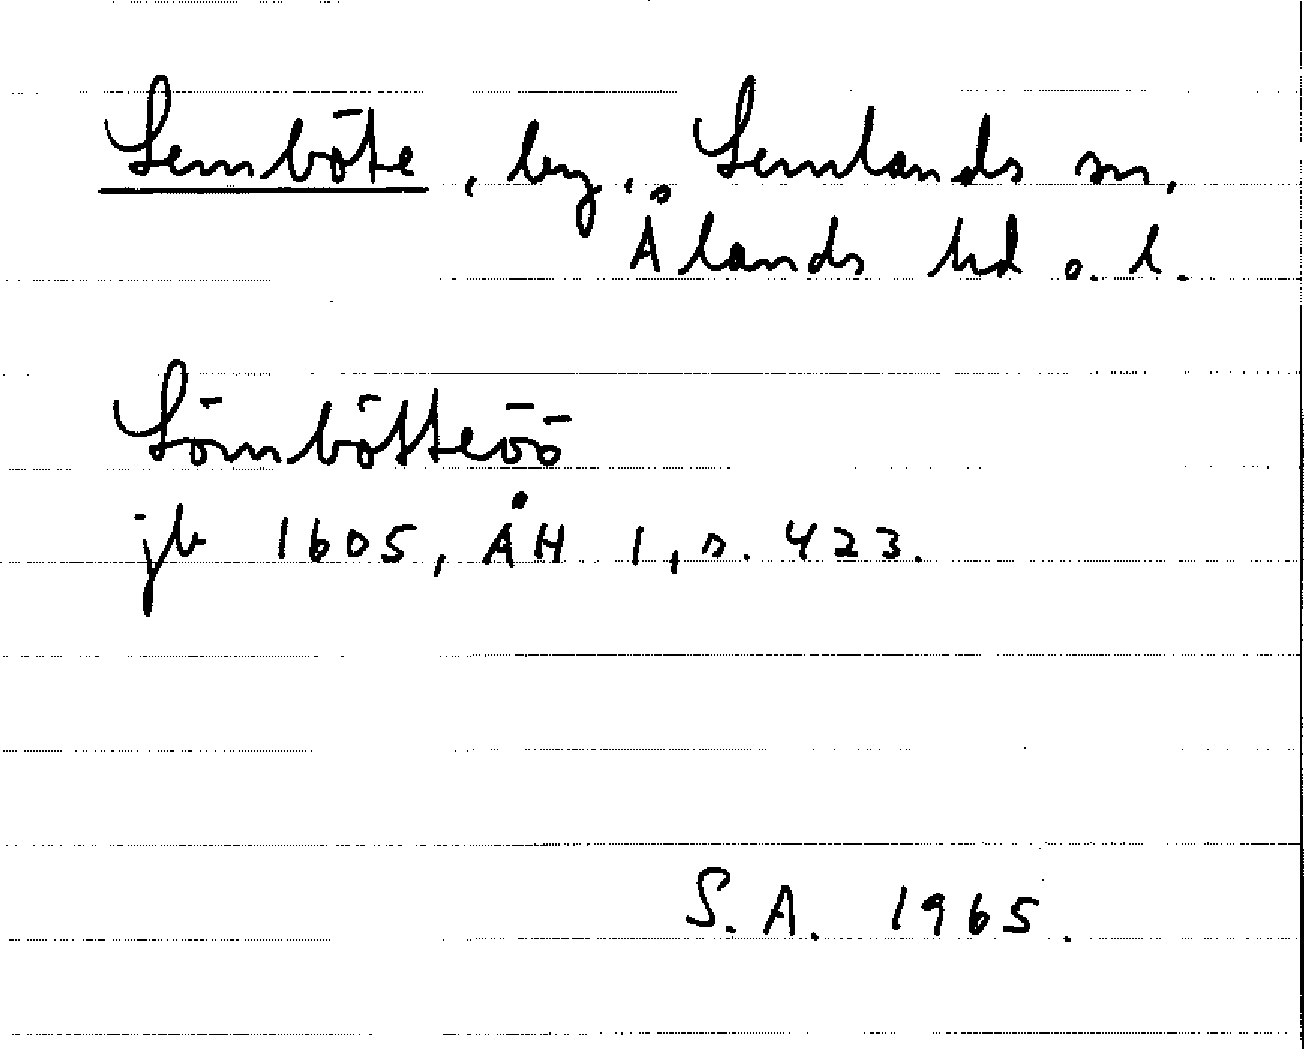 Lemböte, by, Lemlands sn,
Ålands hd o. l.
Lömbötteöö
jb 1605, ÅH 1, s. 423.
S. A. 1965.